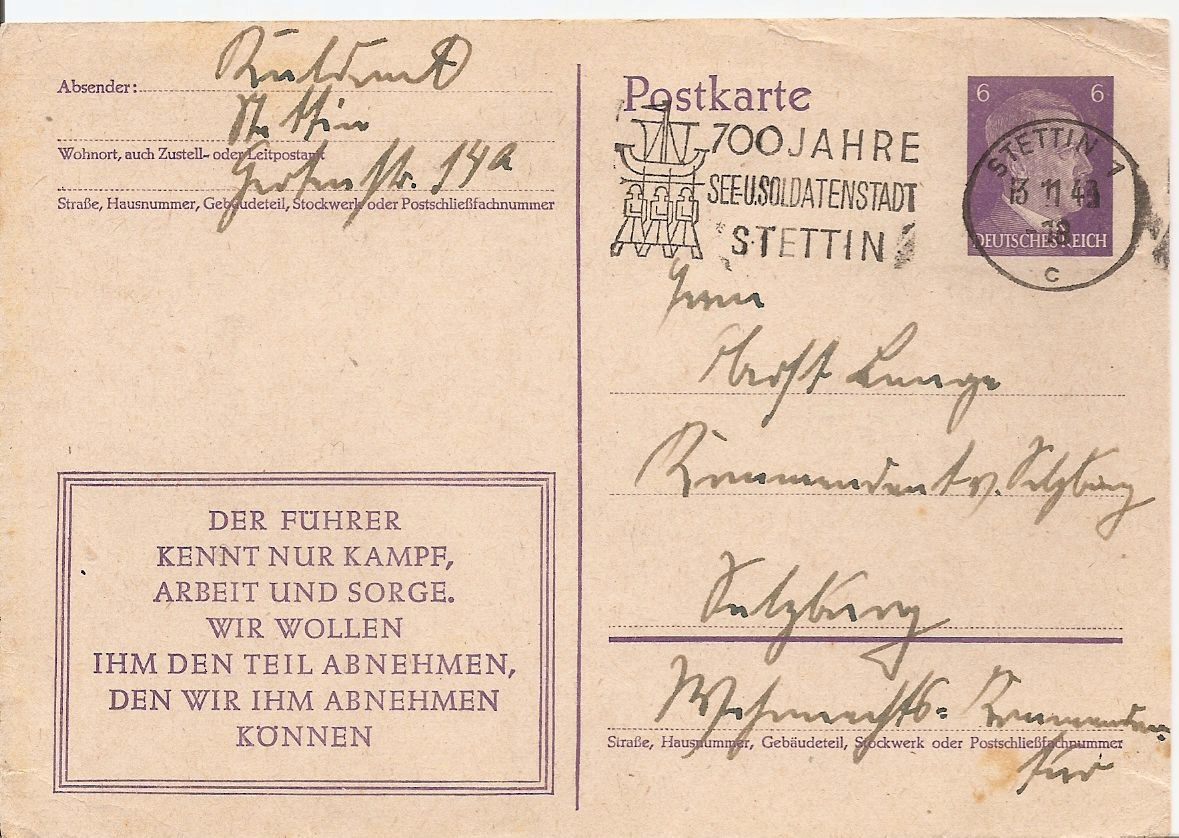 Absender:
Stettin
Wohnort, auch Zustell- oder Leitpostamt
Gerstenstr. 14a
Straße, Hausnummer, Gebäudeteil, Stockwerk oder Postschließfachnummer
DER FÜHRER
KENNT NUR KAMPF,
ARBEIT UND SORGE.
WIR WOLLEN
IHM DEN TEIL ABNEHMEN,
DEN WIR IHM ABNEHMEN
KÖNNEN
Postkarte
700 JAHRE
SEE-U.SOLDATENSTADT
STETTIN
6 6
DEUTSCHES REICH
STETTIN 1
13 11 43
-18
c
Herrn
Oberst Lange
Kommandant v. Salzburg
Salzburg
Wehrmachts-Kommandan-
tur
Straße, Hausnummer, Gebäudeteil, Stockwerk oder Postschließfachnummer